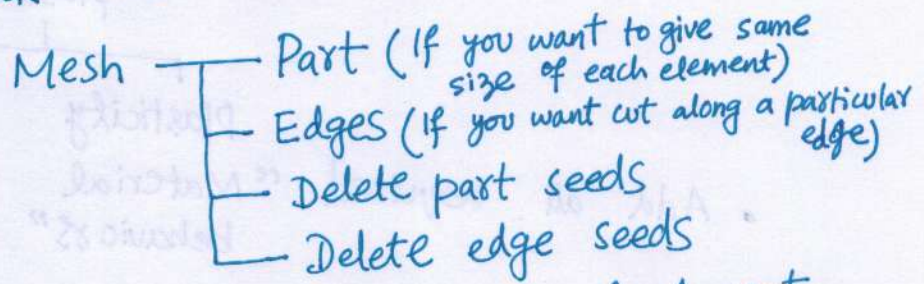 Mesh
Part (If you want to give same
size of each element)
Edges (If you want cut along a particular
edge)
Delete part seeds
Delete edge seeds